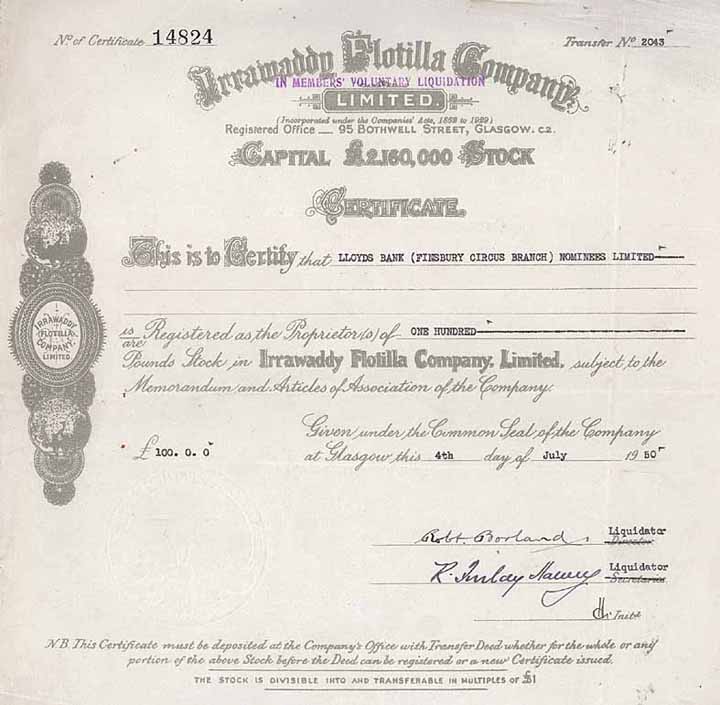 No. of Certificate 14824
Transfer No 2043
Irrawaddy Flotilla Company
IN MEMBERS' VOLUNTARY LIQUIDATION
LIMITED.
(Incorporated under the Companies' Acts, 1862 to 1929)
Registered Office — 95 BOTHWELL STREET, GLASGOW. C2.
CAPITAL £2,160,000 STOCK
CERTIFICATE.
This is to Certify that LLOYDS BANK (FINSBURY CIRCUS BRANCH) NOMINEES LIMITED
is Registered as the Proprietor(s) of ONE HUNDRED
are
Pounds Stock in Irrawaddy Flotilla Company, Limited, subject to the
Memorandum and Articles of Association of the Company.
IRRAWADDY
FLOTILLA
COMPANY.
LIMITED.
Given under the Common Seal of the Company
£ 100. 0. 0 at Glasgow this 4th day of July 1950
Robt. Borland Liquidator
Director
R. Finlay Liquidator
Secretaries
Initd
N.B. This Certificate must be deposited at the Company's Office with Transfer Deed whether for the whole or any
portion of the above Stock before the Deed can be registered or a new Certificate issued.
THE STOCK IS DIVISIBLE INTO AND TRANSFERABLE IN MULTIPLES OF £1